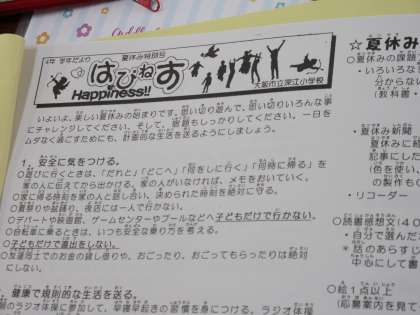 4年 学年だより 夏休み特別号
はぴねす
Happiness!!
大阪市立深江小学校
いよいよ、楽しい夏休みの始まりです。思い切り遊んで、思い切りいろんな事
にチャレンジしてください。そして、宿題もしっかりしてください。一日を
ムダなく過ごすためにも、計画的な生活を送るようにしましょう。
1.安全に気をつける。
○遊びに行くときは、「だれと」「どこへ」「何をしに行く」「何時に帰る」を
家の人に伝えてから出かける。家の人がいなければ、メモをおいていく。
○家に帰る時刻を家の人と話し合い、決められた時刻を絶対に守る。
○夏祭りや盆踊り、夜店には一人で行かない。
○デパートや映画館、ゲームセンターやプールなどへ子どもだけで行かない。
○自転車に乗るときは、いつも安全な乗り方を考える。
○子どもだけで遠出をしない。
○友達同士でのお金の貸し借りや、おごったり、おごってもらったりは絶対
にしない。
健康で規則的な生活を送る。
のラジオ体操に参加して、早寝早起きの習慣を身につける。ラジオ体操
☆夏休み
○夏休みの課題
・いろいろな
分からない
(教科書・
・夏休み新聞
夏休みに
記事にした
(倍を使い、
の製作も
・リコーダー
○読書感想文(40
・自分で選んだ
*話のあらすじ
中心にして書
○絵1点以上
(応募案内を見て